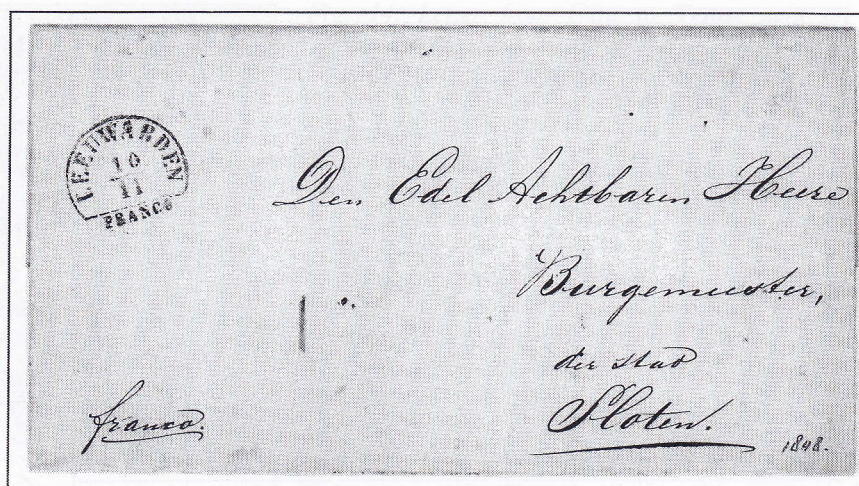 LEEUWARDEN
10
11
FRANCO
Den Edel Achtbaren Heere
Burgemeester,
der stad
Sloten.
franco.
1848.